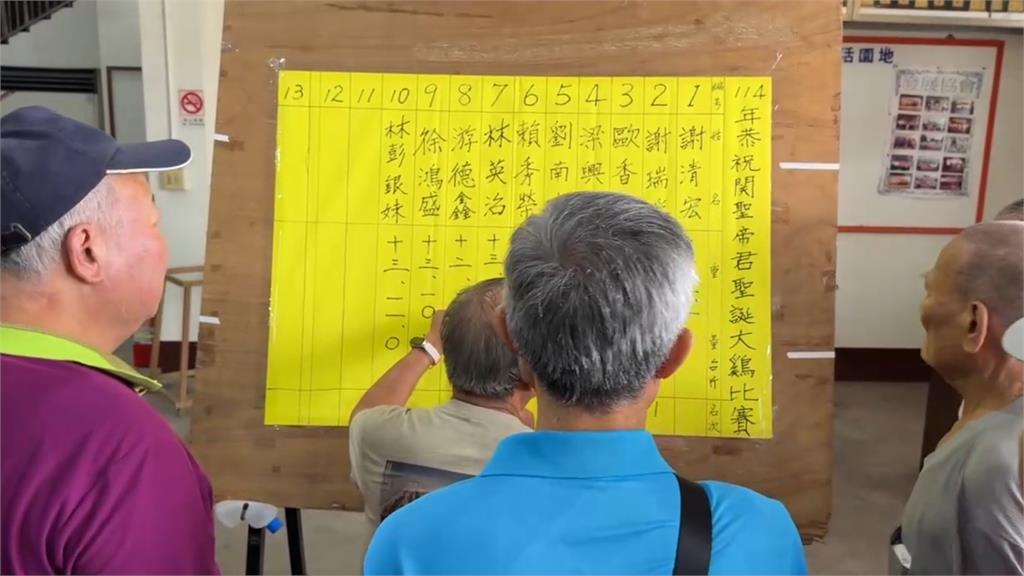 114年恭祝関聖帝君聖誕大鷄比賽
編号 姓名 重量台斤 名次
1 謝清宏
2 謝瑞
3 歐香
4 梁興
5 劉南
6 賴秀榮
7 林英治 十三
8 游德鑫 十二、
9 徐鴻盛 十三、一0
10 林彭銀妹 十三、一一、0
11
12
13
活園地
發展協會